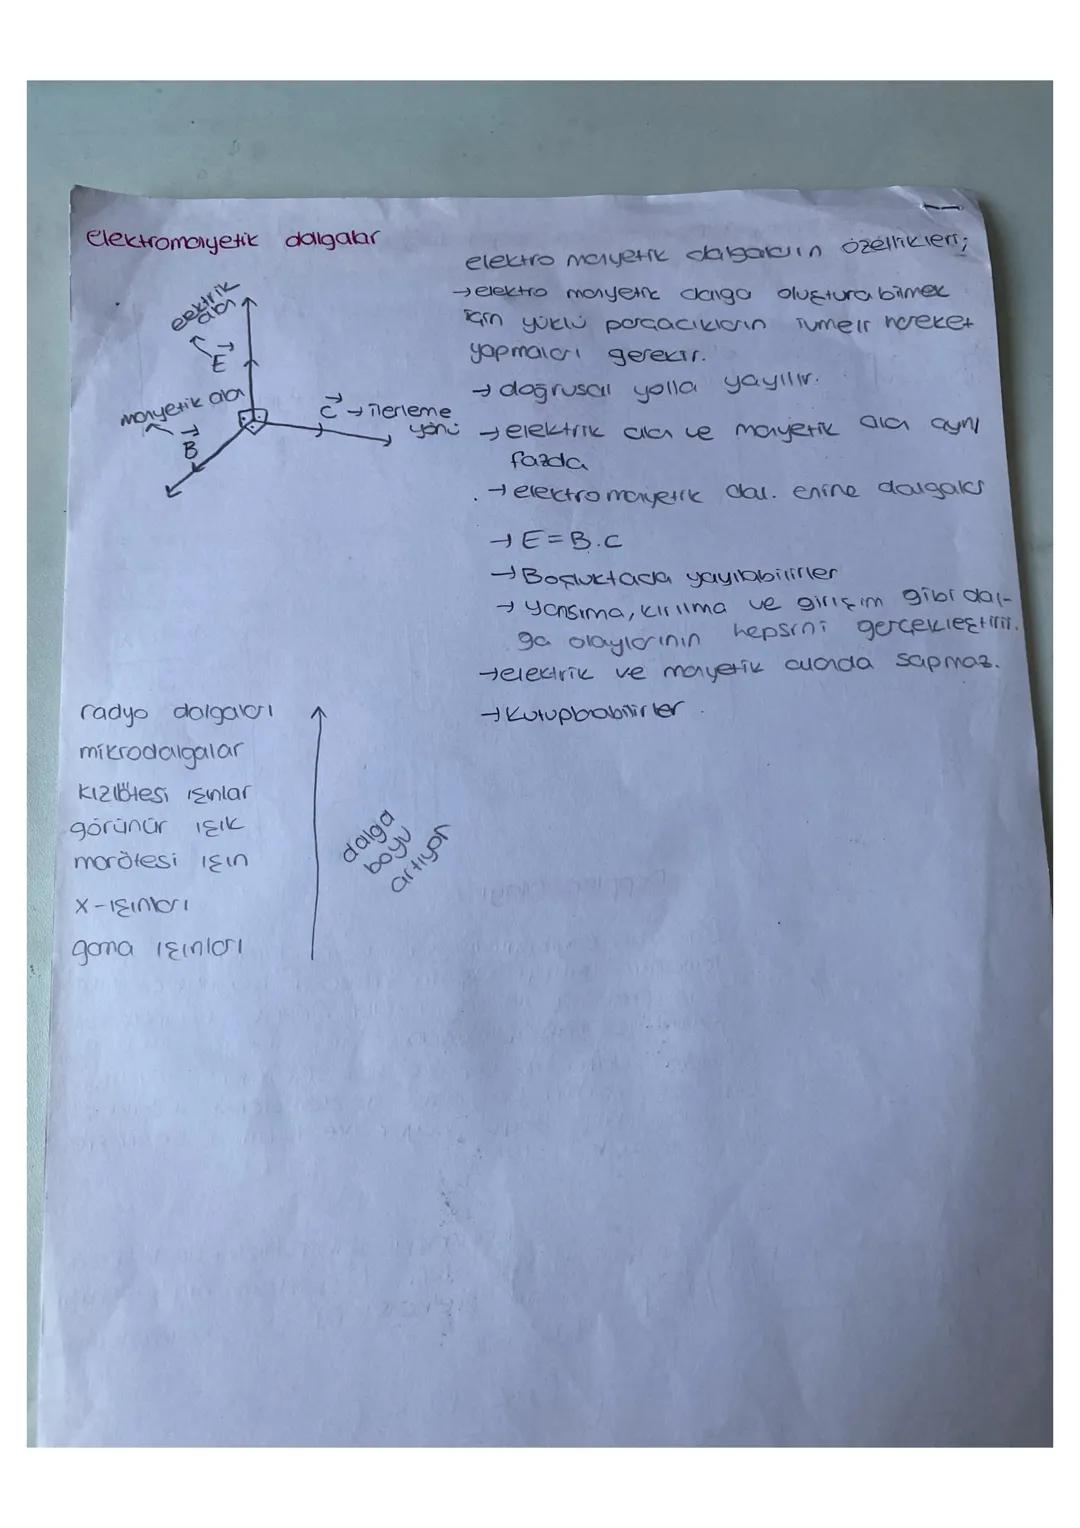 elektromanyetik dalgalar
elektrik
alan
E
manyetik alan
B
c → ilerleme
yönü
elektro manyetik dalgaların özellikleri;
→ elektro manyetik dalga oluşturabilmek
için yüklü parçacıkların ivmeli hareket
yapmaları gerekir.
→ doğrusal yolla yayılır.
→ elektrik alan ve manyetik alan aynı
fazda
→ elektromanyetik dal. enine dalgalar
→ E = B.c
→ Boşluktada yayılabilirler
→ yansıma, kırılma ve girişim gibi dal-
ga olaylarının hepsini gerçekleştirir.
→ elektrik ve manyetik alanda sapmaz.
→ Kutuplanabilirler.
radyo dalgaları
mikrodalgalar
kızılötesi ışınlar
görünür ışık
morötesi ışın
x-ışınları
gama ışınları
dalga
boyu
artıyor